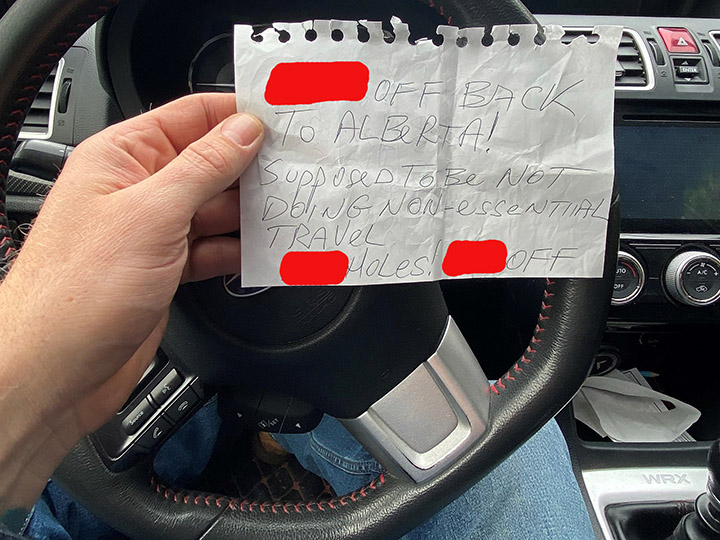 OFF BACK
TO ALBERTA!
SUPPOSED TO BE NOT
DOING NON-ESSENTIAL
TRAVEL
HOLES! OFF
ENTER
AUTO
OFF
A/C
SOURCE
WRX